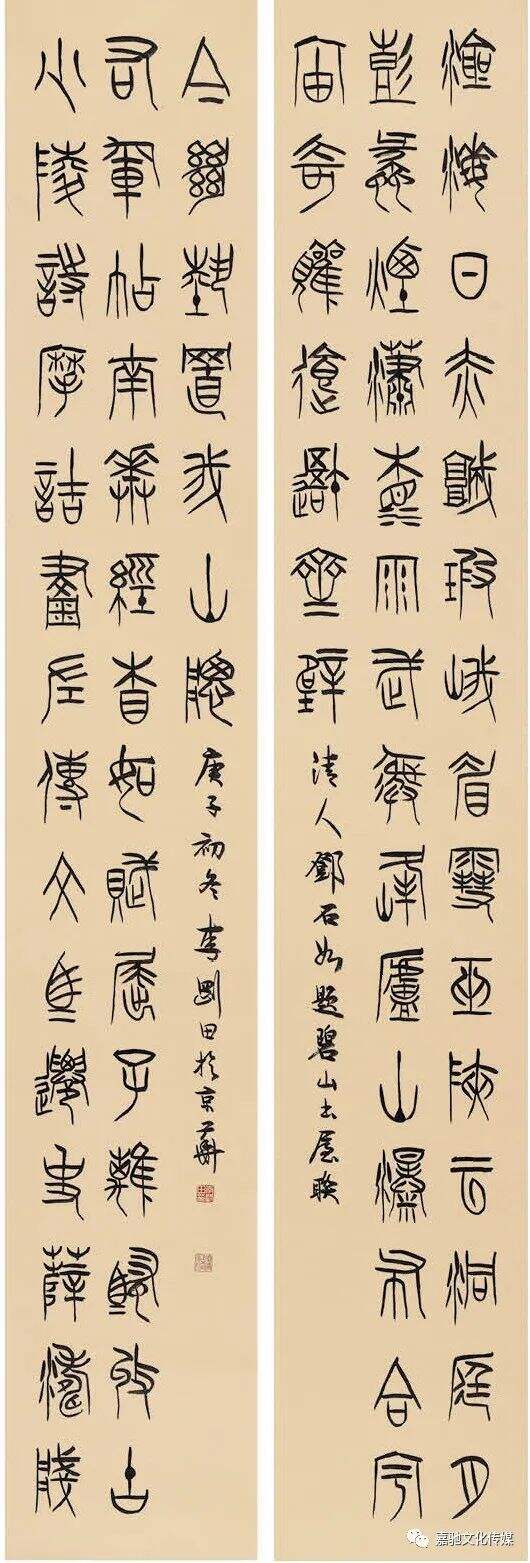 滄海日赤城霞峨眉雪巫峽云洞庭月
彭蠡煙瀟湘雨武夷峰廬山瀑布合宇
宙奇觀繪吾齋壁
清人鄧石如題碧山書屋聯
少陵詩摩詰畫左傳文馬遷史薛濤箋
右軍帖南華經相如賦屈子離騷收古
今絕藝置我山窗
庚子初冬李剛田於京華
嘉驰文化传媒